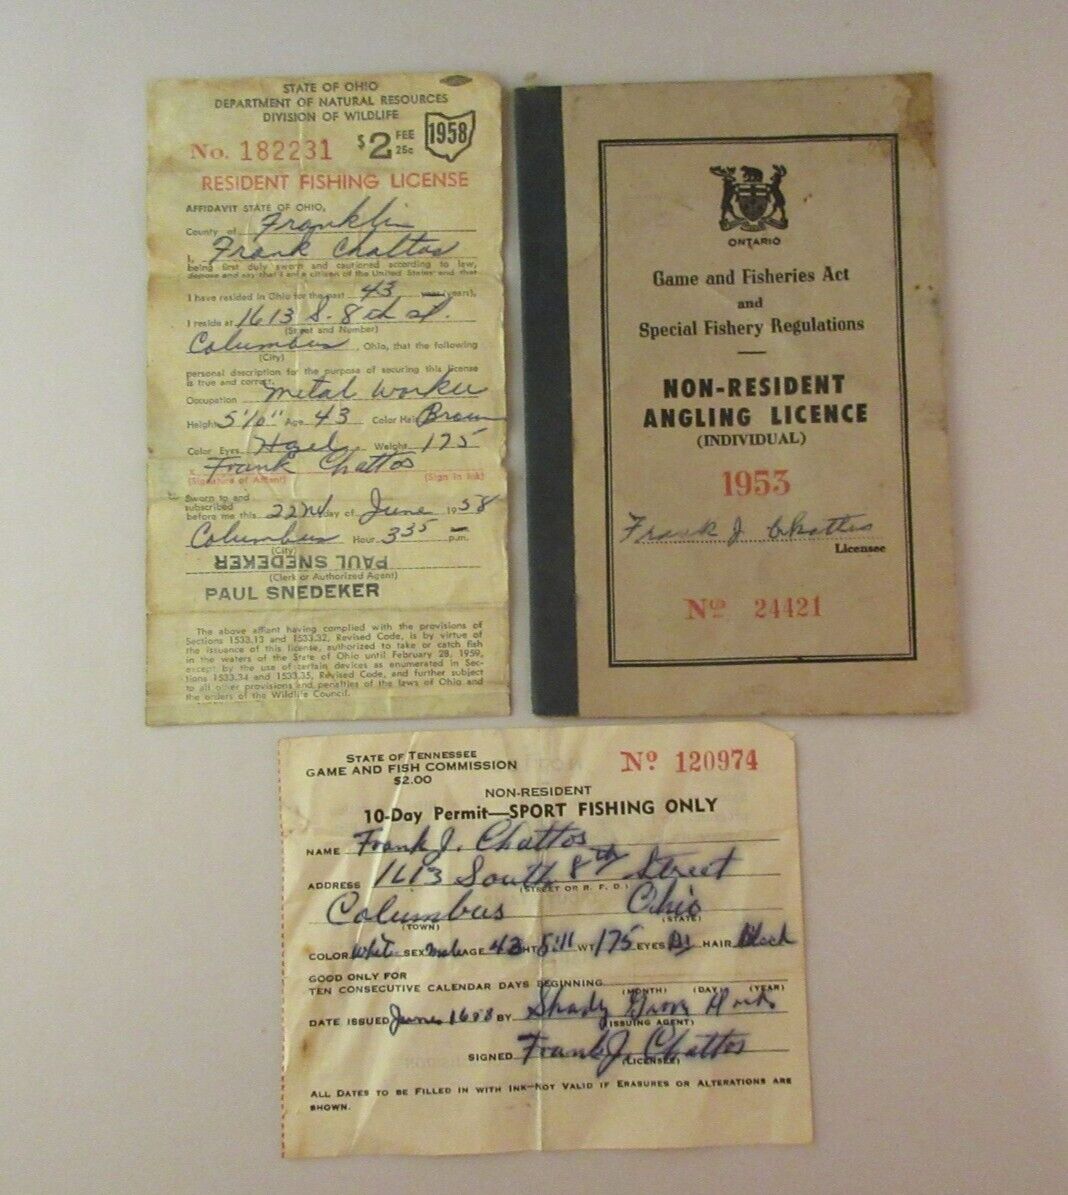 STATE OF OHIO
DEPARTMENT OF NATURAL RESOURCES
DIVISION OF WILDLIFE
No. 182231 $2 FEE 25c 1958
RESIDENT FISHING LICENSE
AFFIDAVIT STATE OF OHIO,
County of Franklin
I, Frank Chattos
being first duly sworn and cautioned according to law,
depose and say that I am a citizen of the United States and that
I have resided in Ohio for the past 43 year (years),
I reside at 1613 S. 8th St.
(Street and Number)
Columbus, Ohio, that the following
(City)
personal description for the purpose of securing this license
is true and correct.
Occupation Metal Worker
Height 5'10" Age 43 Color Hair Brown
Color Eyes Hazel Weight 175
x Frank Chattos
(Signature of Affiant) (Sign in Ink)
Sworn to and
subscribed
before me this 22nd day of June 1958
Columbus Hour 3:35 p.m.
(City)
PAUL SNEDEKER
(Clerk or Authorized Agent)
PAUL SNEDEKER
The above affiant having complied with the provisions of
Sections 1533.13 and 1533.32, Revised Code, is by virtue of
the issuance of this license, authorized to take or catch fish
in the waters of the State of Ohio until February 28, 1959,
except by the use of certain devices as enumerated in Sec-
tions 1533.34 and 1533.35, Revised Code, and further subject
to all other provisions and penalties of the laws of Ohio and
the orders of the Wildlife Council.
ONTARIO
Game and Fisheries Act
and
Special Fishery Regulations
NON-RESIDENT
ANGLING LICENCE
(INDIVIDUAL)
1953
Frank J Chattos
Licensee
No 24421
STATE OF TENNESSEE
GAME AND FISH COMMISSION
$2.00
No 120974
NON-RESIDENT
10-Day Permit—SPORT FISHING ONLY
NAME Frank J. Chattos
ADDRESS 1613 South 8th Street
(STREET OR R. F. D.)
Columbus Ohio
(TOWN) (STATE)
COLOR White SEX Male AGE 43 HT 5:11 WT 175 EYES HAIR Black
GOOD ONLY FOR
TEN CONSECUTIVE CALENDAR DAYS BEGINNING
(MONTH) (DAY) (YEAR)
DATE ISSUED June 16 BY Shady Grove
(ISSUING AGENT)
SIGNED Frank J. Chattos
(LICENSEE)
ALL DATES TO BE FILLED IN WITH INK—NOT VALID IF ERASURES OR ALTERATIONS ARE
SHOWN.